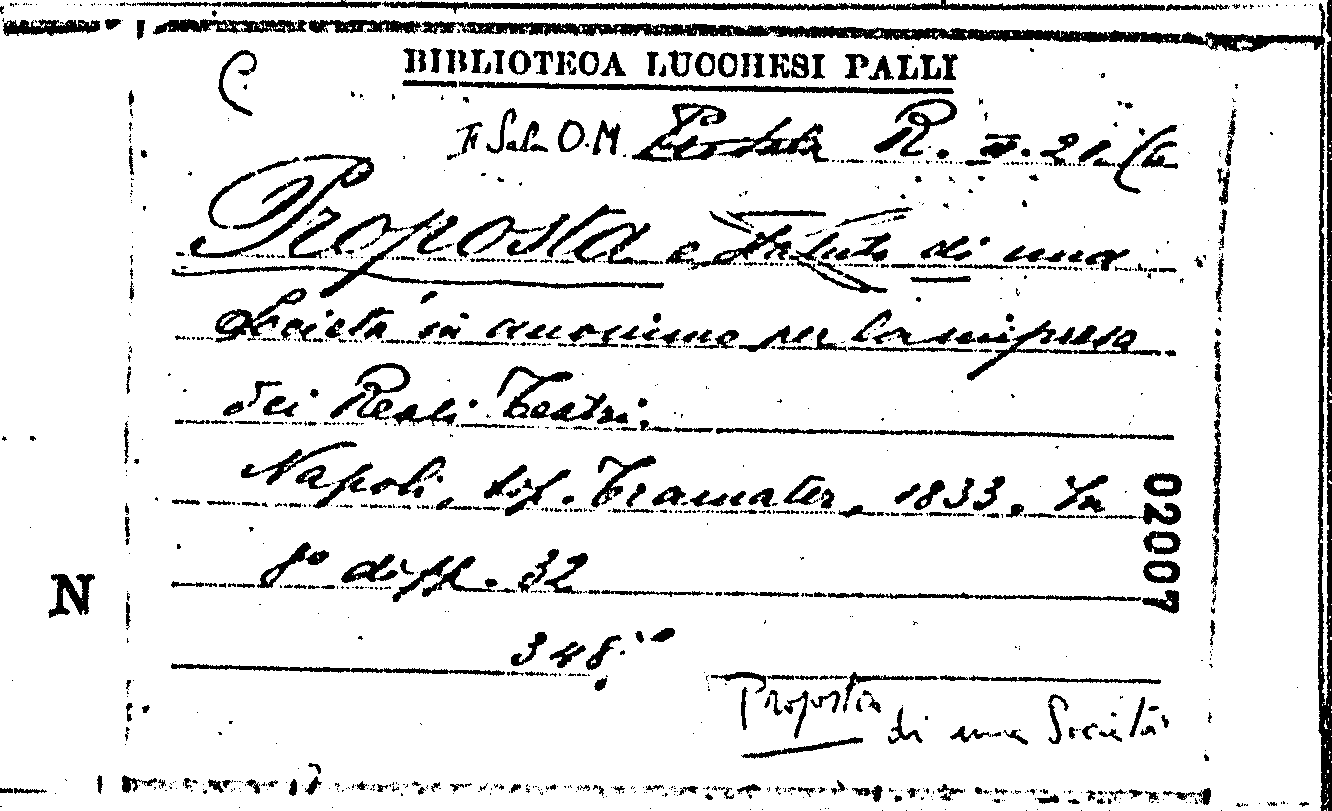 C
BIBLIOTECA LUCCHESI PALLI
F Sala O.M Pisdata R. II. 21. (6
Proposta e Statuto di una
Società in anonimo per la impresa
dei Reali Teatri.
Napoli, tip. Tramater, 1833. In
8° di pp. 32
348.
N
02007
Proposta di una Società